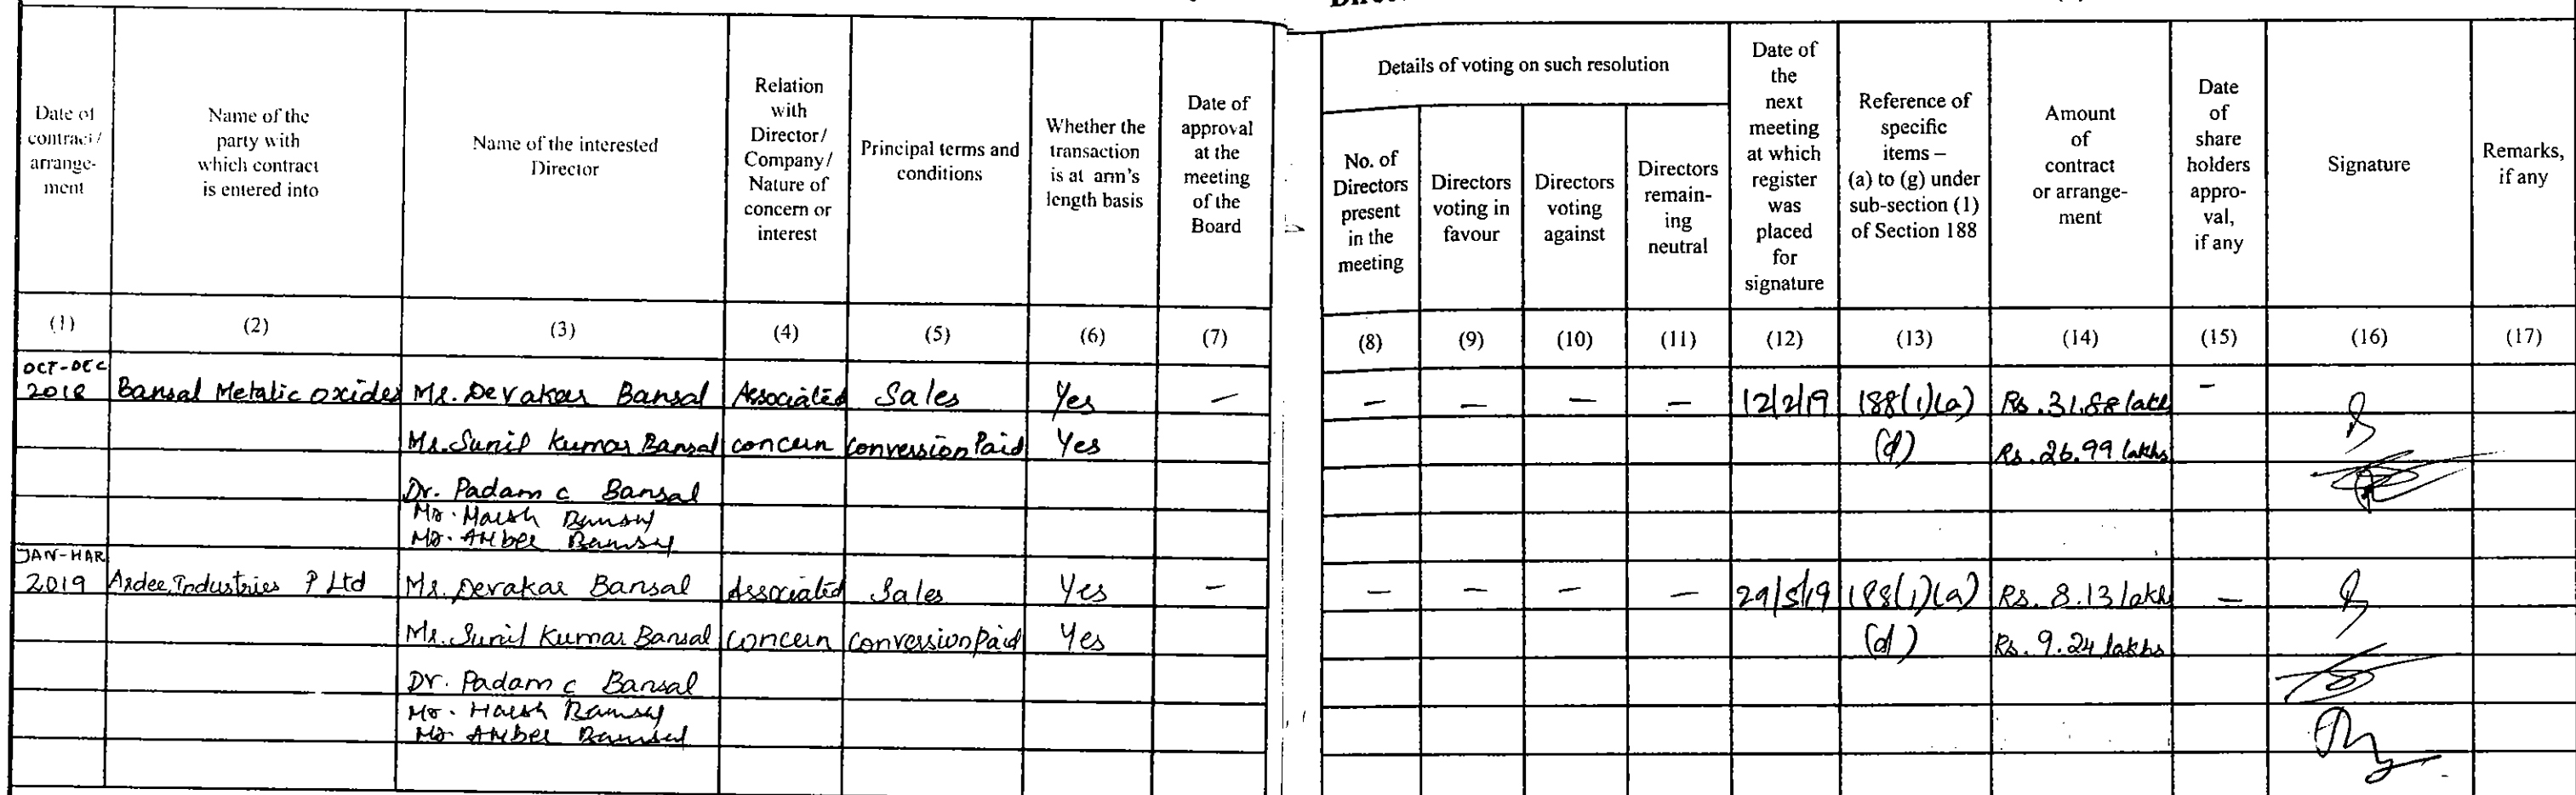 Details of voting on such resolution
Date of contract / arrange-ment
Name of the party with which contract is entered into
Name of the interested Director
Relation with Director/ Company/ Nature of concern or interest
Principal terms and conditions
Whether the transaction is at arm's length basis
Date of approval at the meeting of the Board
No. of Directors present in the meeting
Directors voting in favour
Directors voting against
Directors remain-ing neutral
Date of the next meeting at which register was placed for signature
Reference of specific items – (a) to (g) under sub-section (1) of Section 188
Amount of contract or arrange-ment
Date of share holders appro-val, if any
Signature
Remarks, if any
(1) (2) (3) (4) (5) (6) (7) (8) (9) (10) (11) (12) (13) (14) (15) (16) (17)
OCT-DEC
2018 Bansal Metalic oxides Mr. Devakar Bansal Associated Sales Yes — — — — — 12/2/19 188(1)(a) Rs. 31.88 lakh -
Mr. Sunil Kumar Bansal concern conversion Paid Yes (d) Rs. 26.99 lakhs
Dr. Padam c Bansal
Mr. Harsh Bansal
Mr. Amber Bansal
JAN-MAR
2019 Ardee Industries P Ltd Mr. Devakar Bansal Associated Sales Yes — — — — — 29/5/19 188(1)(a) Rs. 8.13 lakh —
Mr. Sunil Kumar Bansal concern conversion paid Yes (d) Rs. 9.24 lakhs
Dr. Padam c Bansal
Mr. Harsh Bansal
Mr. Amber Bansal